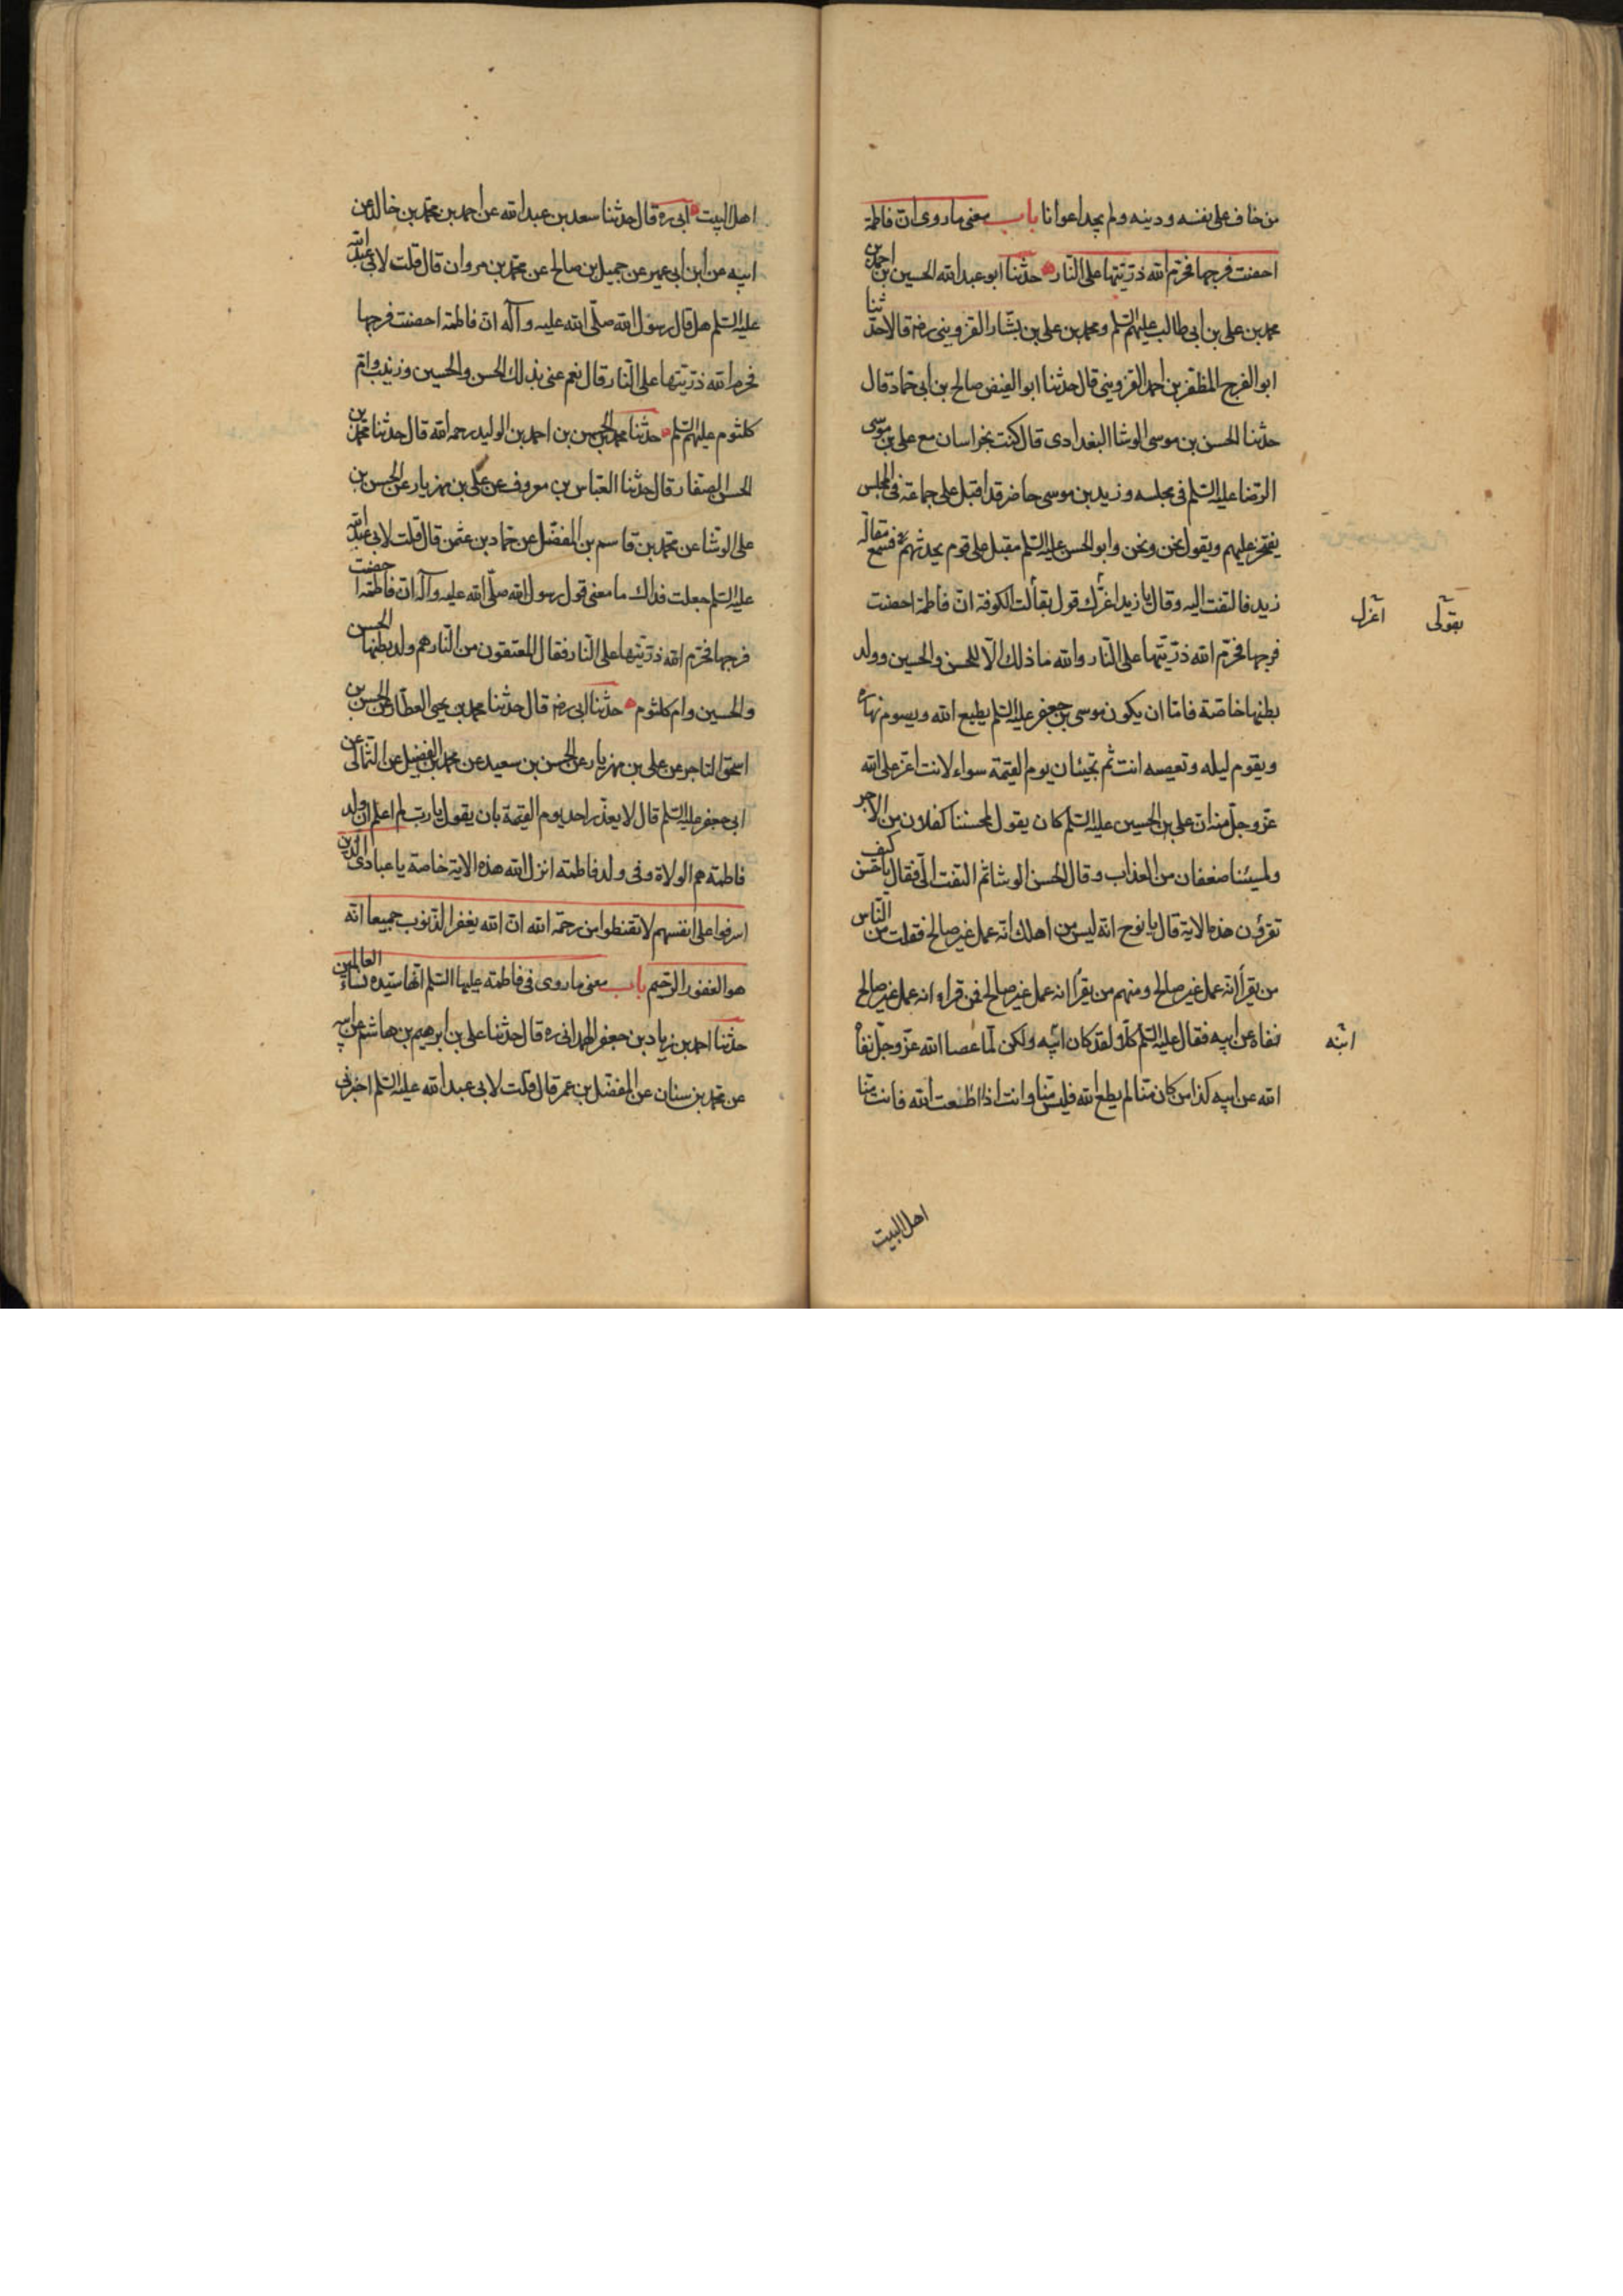 من خاف على نفسه ودينه ولم يجد اعوانا باب معنى ما روى ان فاطمة
احصنت فرجها فحرّم الله ذرّيتها على النّار حدثنا ابو عبد الله الحسين بن احمد بن
محمد بن على بن ابى طالب عليهم السّلم ومحمد بن على بن بشّار القزوينى رضه قالا حدّثنا
ابو الفرج المظفّر بن احمد القزوينى قال حدثنا ابو الفيض صالح بن ابى حمّاد قال
حدثنا الحسن بن موسى الوشا البغدادى قال كنت بخراسان مع على بن موسى
الرّضا عليه السّلم فى مجلسه وزيد بن موسى حاضر قد اقبل على جماعة فى المجلس
يفتخر عليهم ويقول نحن ونحن وابو الحسن عليه السّلم مقبل على قوم يحدثهم فسمع مقالة
زيد فالتفت اليه وقال يا زيد اغرّك قول بقّالت الكوفة انّ فاطمة احصنت
اغرك
بقولى
فرجها فحرّم الله ذرّيتها على النّار والله ما ذلك الّا للحسن والحسين وولد
بطنها خاصّة فامّا ان يكون موسى بن جعفر عليه السّلم يطيع الله ويصوم نهاره
ويقوم ليله وتعصيه انت ثم تجيئان يوم القيمة سواء لانت اعزّ على الله
عزّ وجلّ منه انّ على بن الحسين عليه السّلم كان يقول لمحسننا كفلان من الاجر
ولمسيئنا ضعفان من العذاب وقال الحسن الوشا ثم التفت الىّ فقال يا حسن كيف
تقرؤن هذه الاية قال يا نوح انه ليس من اهلك انّه عمل غير صالح فقلت من النّاس
من يقرأ انه عمل غير صالح ومنهم من يقرأ انه عمل غير صالح فمن قراء انه عمل غير صالح
نفاه عن ابيه فقال عليه السّلم كلّا ولقد كان ابنه ولكن لمّا عصا الله عزّ وجلّ نفاه
ابنه
الله عن ابيه كذا من كان منّا لم يطع الله فليس منّا وانت اذا اطعت الله فانت منّا
اهل البيت
اهل البيت ابى ره قال حدثنا سعد بن عبد الله عن احمد بن محمد بن خالد عن
ابيه عن ابن ابى عمير عن جميل بن صالح عن محمد بن مروان قال قلت لابى عبد الله
عليه السّلم هل قال رسول الله صلّى الله عليه وآله انّ فاطمة احصنت فرجها
فحرم الله ذرّيتها على النّار قال نعم عنى بذلك الحسن والحسين وزينب وام
كلثوم عليهم السّلم حدثنا محمد بن الحسن بن احمد بن الوليد رحمه الله قال حدثنا محمد بن
الحسن الصفار قال حدثنا العبّاس بن معروف عن على بن مهزيار عن الحسن بن
على الوشا عن محمد بن قاسم بن المفضّل عن حمّاد بن عثمن قال قلت لابى عبد الله
عليه السّلم جعلت فداك ما معنى قول رسول الله صلّى الله عليه وآله انّ فاطمة احصنت
فرجها فحرّم الله ذرّيتها على النّار فقال المعتقون من النّار هم ولد بطنها الحسن
والحسين وام كلثوم حدثنا ابى رضه قال حدثنا محمد بن يحيى العطّار عن الحسن بن
اسحق التاجر عن على بن مهزيار عن الحسن بن سعيد عن محمد بن الفضيل عن الثمالى عن
ابى جعفر عليه السّلم قال لا يعذّر احد يوم القيمة بان يقول يا ربّ لم اعلم ان ولد
فاطمة هم الولاة وفى ولد فاطمة انزل الله هذه الاية خاصة يا عبادى الذين
اسرفوا على انفسهم لا تقنطوا من رحمة الله ان الله يغفر الذنوب جميعا انه
هو الغفور الرّحيم باب معنى ما روى فى فاطمة عليها السّلم انّها سيّدة نساء العالمين
حدثنا احمد بن زياد بن جعفر الهمدانى ره قال حدثنا على بن ابرهيم بن هاشم عن ابيه
عن محمد بن سنان عن المفضّل بن عمر قال قلت لابى عبد الله عليه السّلم اخبرنى